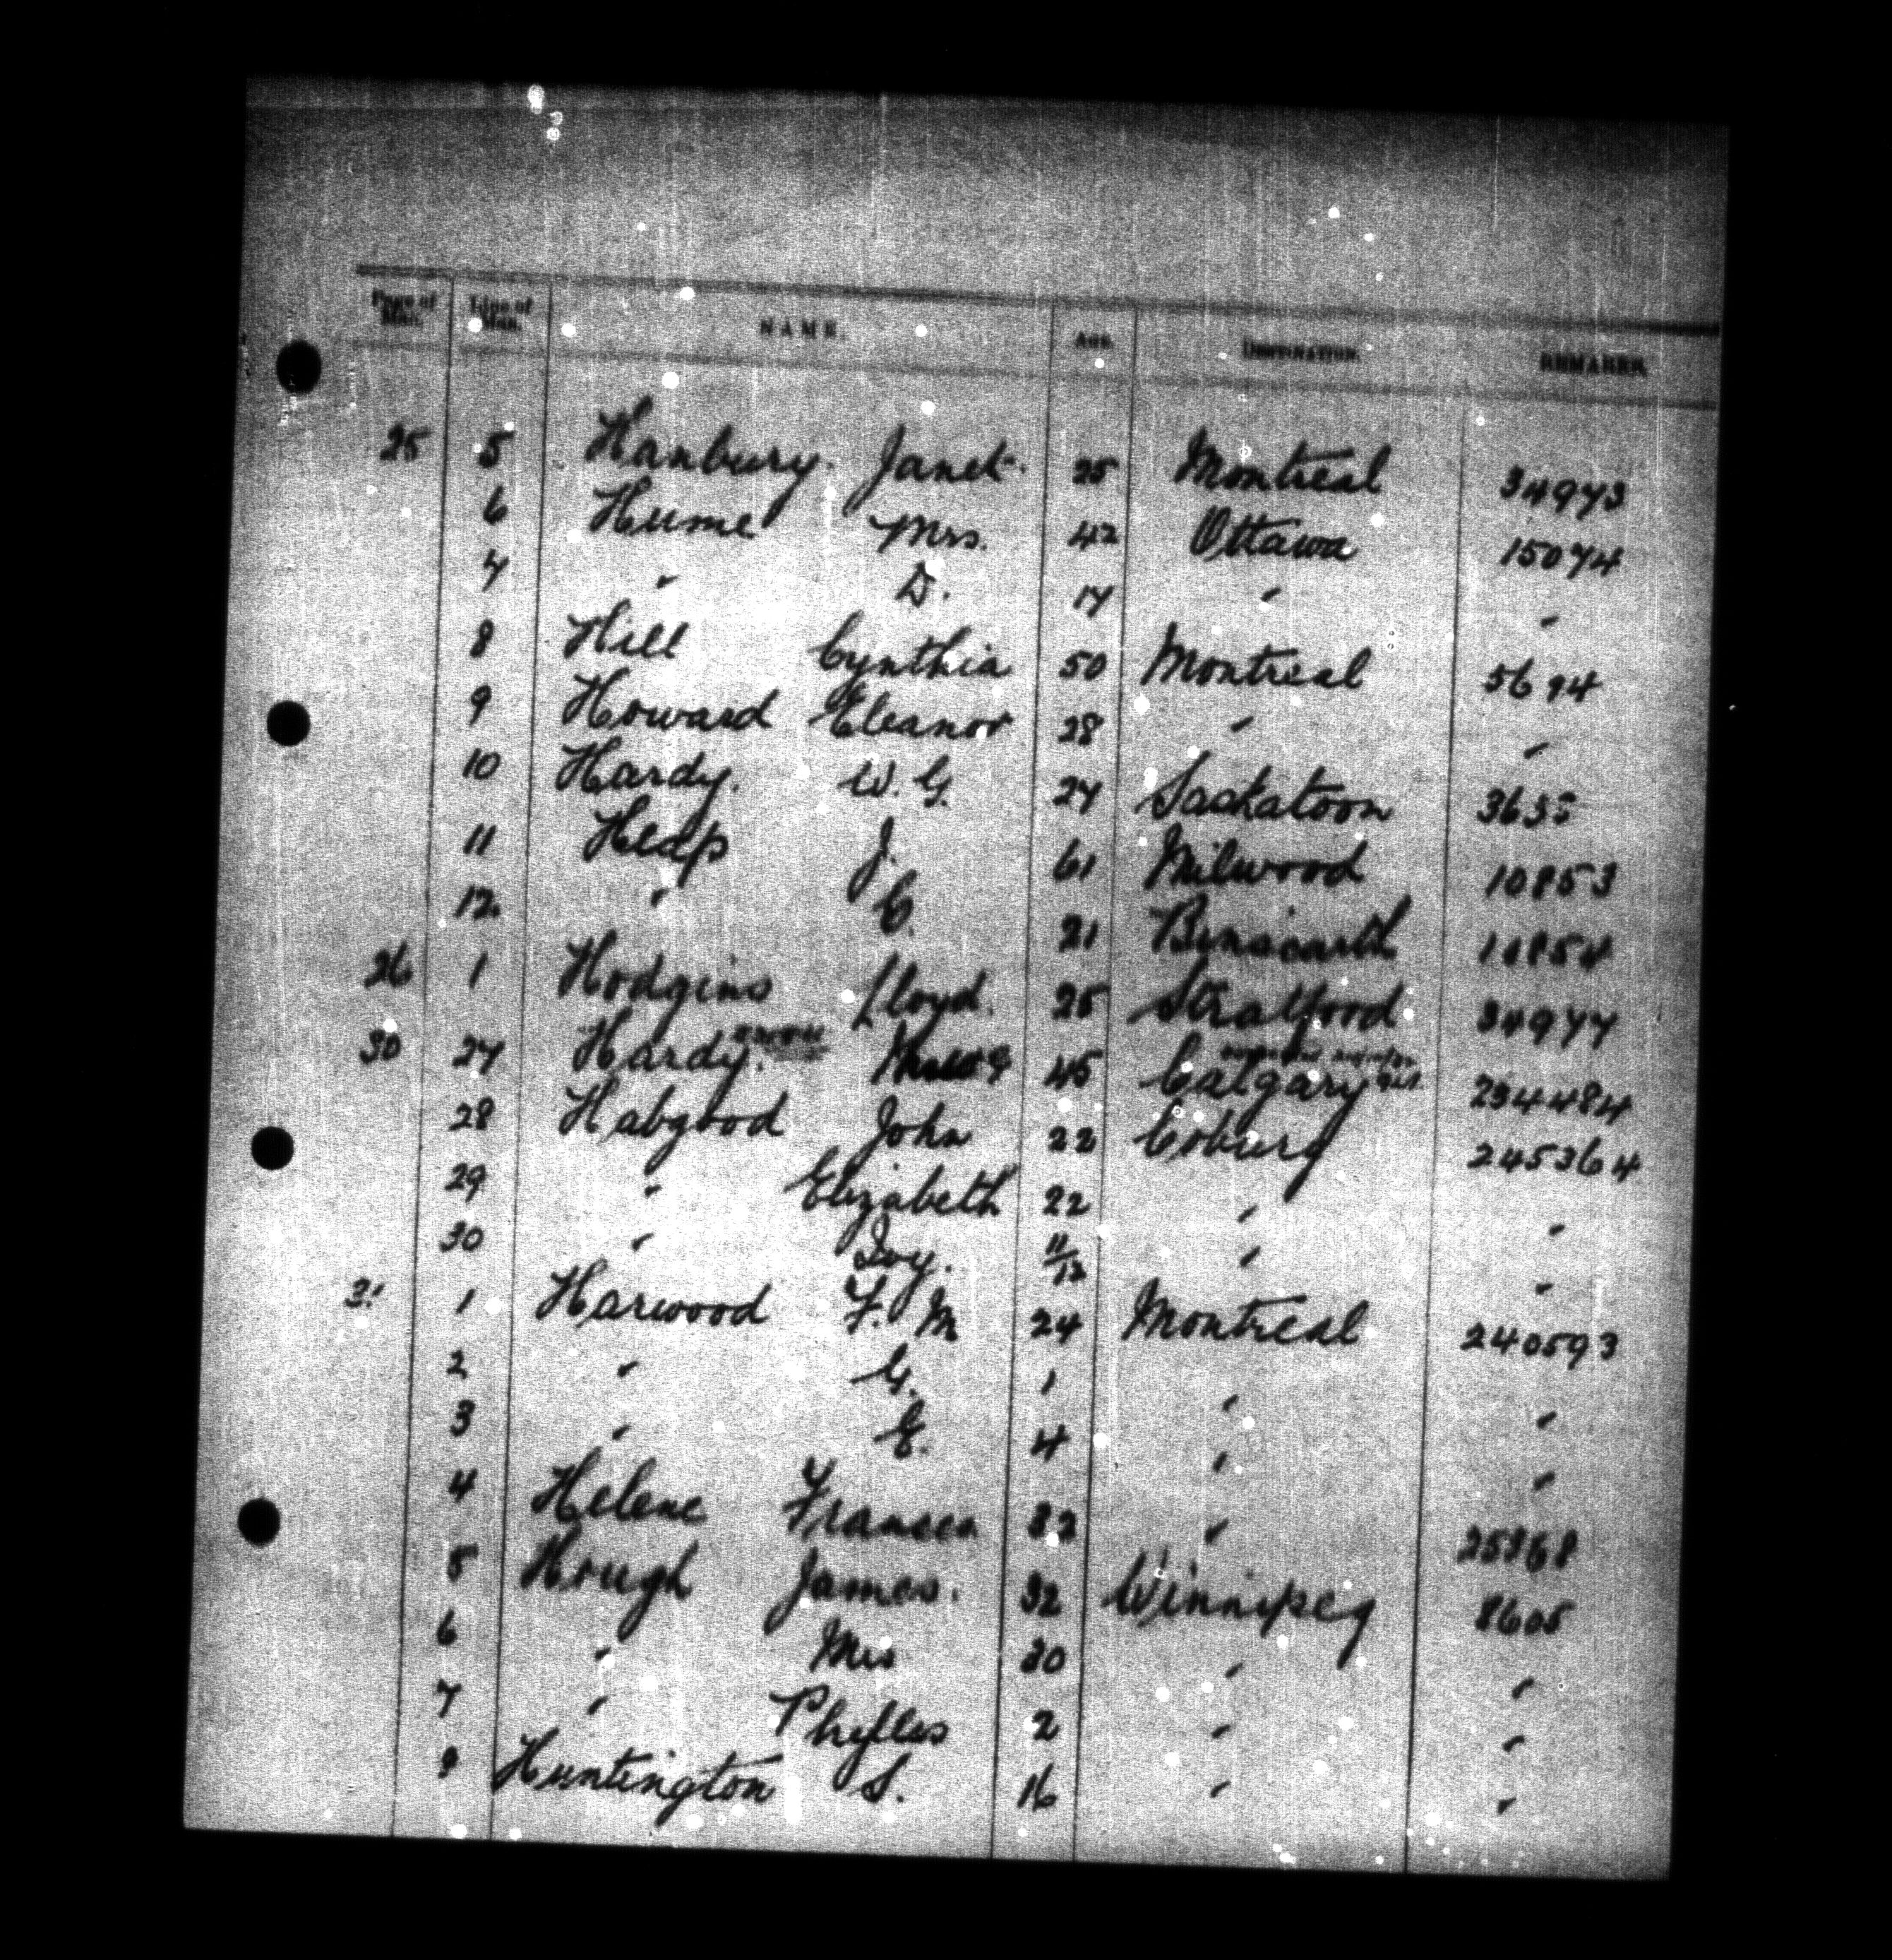 Page of Man. Line of Man. NAME. Age. Destination. REMARKS.
25 5 Hanbury. Janet. 25 Montreal 34973
6 Hume Mrs. 42 Ottawa 15074
7 " D. 17 " "
8 Hill Cynthia 50 Montreal 5694
9 Howard Eleanor 28 " "
10 Hardy. W. G. 27 Saskatoon 3635
11 Heap J. 61 Milwood 10853
12. " C. 21 Binscarth 10854
26 1 Hodgins Lloyd. 25 Stratford 34977
30 27 Hardy. 45 Calgary 234484
28 Habgood John 22 Coburg 245364
29 " Elizabeth 22 " "
30 " Ivy. 11/12 " "
31 1 Harwood F. M 24 Montreal 240593
2 " G. 1 " "
3 " E. 4 " "
4 Helene Fransen 32 " 25368
5 Hough James. 32 Winnipeg 8605
6 " Mrs 30 " "
7 " Phyllis 2 " "
Huntington S. 16 " "